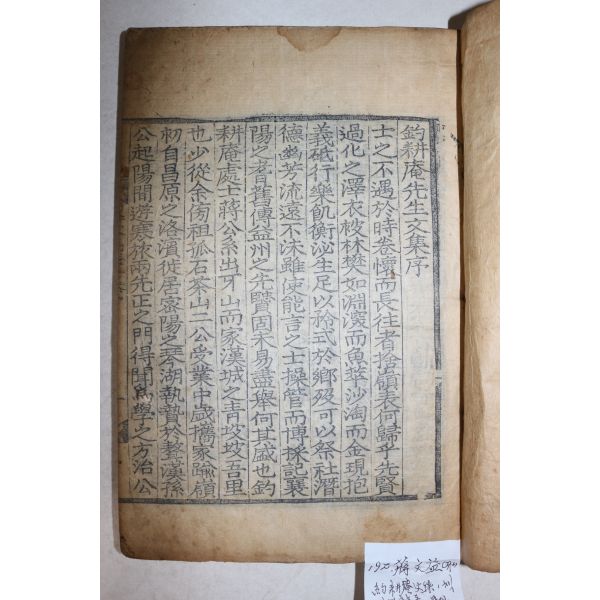 釣耕庵先生文集序
士之不遇於時卷懷而長往者捨嶺表何歸乎先賢
過化之澤衣被林樊如淵邃而魚萃沙淘而金現抱
義砥行樂飢衡泌生足以矜式於鄉歿可以祭社潛
德幽芳流遠不沬雖使能言之士操管而博採記襄
陽之耆舊傳益州之先賢固未易盡舉何其盛也釣
耕庵處士蔣公系出牙山而家漢城之靑坡坡吾里
也少從余傍祖孤石茶山二公受業中歲攜家踰嶺
初自昌原之洛濱從居密陽之琴湖執贄於繫漢孫
公起陽間遊寒旅兩先正之門得聞爲學之方治公
1920 蔣文益